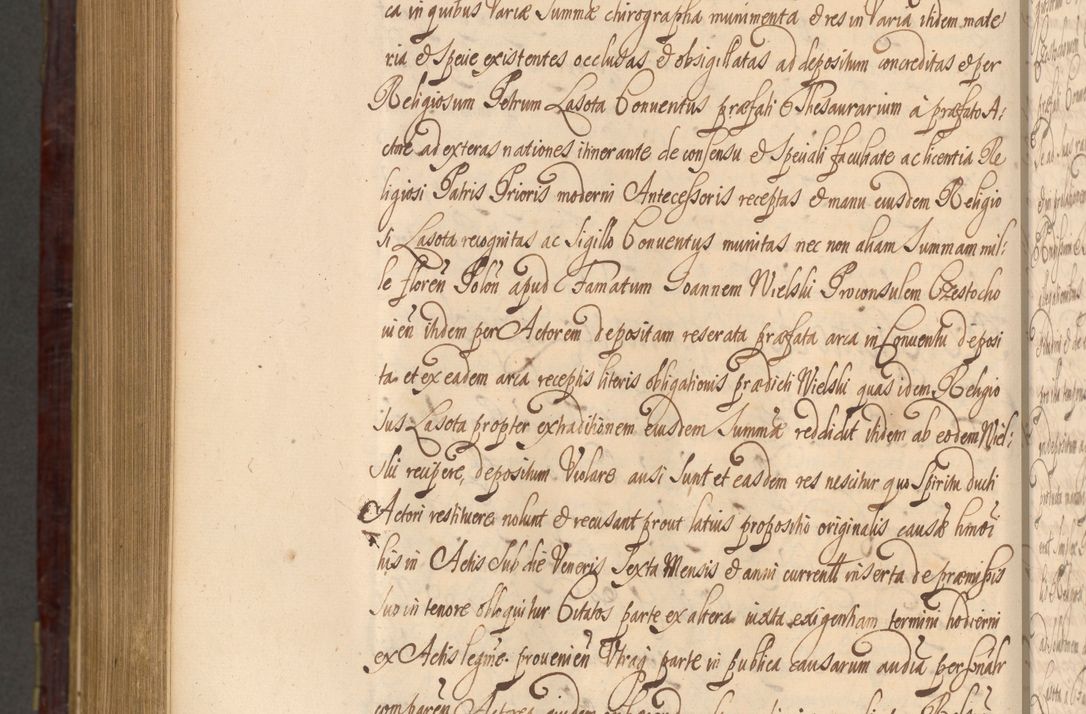 ca in quibus Variæ Summæ chirographa munimenta & res in Varia ibidem mate
ria & Specie existentes occlusas & obsigillatas ad depositum concreditas & per
Religiosum Petrum Lasota Conuentus præfati & Thesaurarium à præfato A:
ctore ad exteras nationes itinerante de consensu & Speciali facultate ac licentia Re
ligiosi Patris Prioris moderni Antecessoris receptas & manu eiusdem Religio
si Lasota recognitas ac Sigillo Conuentus munitas nec non aliam Summam mil:
le floren Polon apud Famatum Joannem Nielski Proconsulem Czestocho
uien ibidem per Actorem depositam reserata præfata arca in Conuentu deposi
ta et ex eadem arca receptis literis obligatioris prædicti Nielski quas idem Religio
sus Lasota propter extraditionem eiusdem Summæ reddidit ibidem ab eodem Niel:
ski recipere, depositum Violare ausi Sunt et easdem res nescitur quo Spiritu ducti
Actori restituere nolunt & recusant prout latius propositio originalis causæ
his in Actis Sub die Veneris Sexta Mensis & anni currentt inserta de præmissis
suo in tenore obloquitur Citatos parte ex altera iuxta exigentiam termini hodierni
ex Actis legme prouenien Vtraq parte in publica causarum audia
comparen Actorea